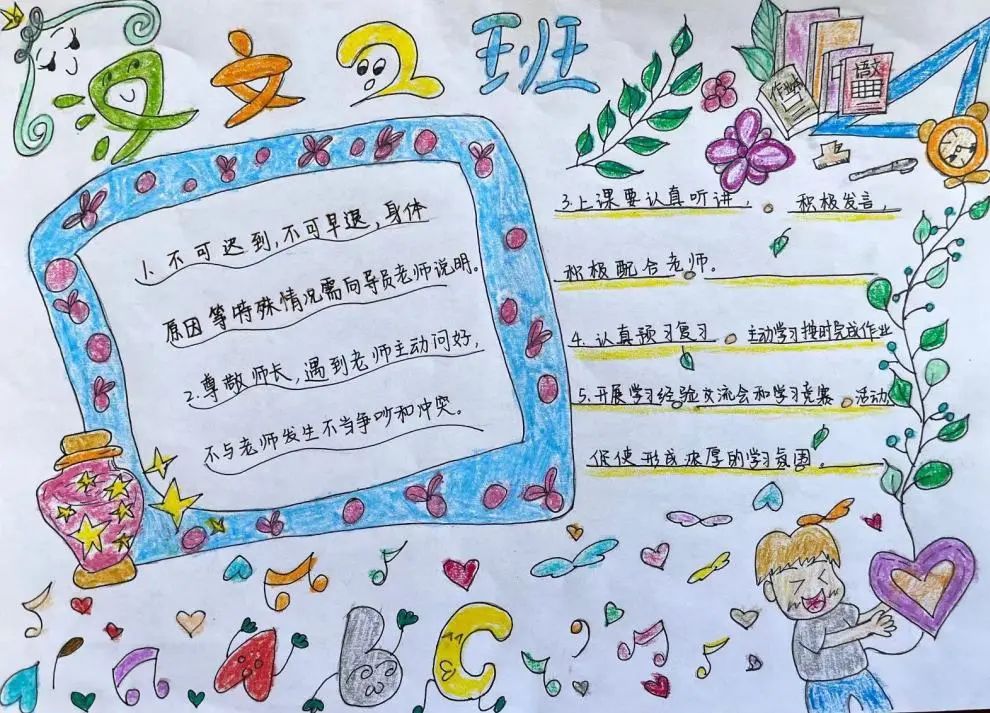 汉文2班
作业本
语文
1、不可迟到,不可早退,身体
原因等特殊情况需向导员老师说明。
2.尊敬师长,遇到老师主动问好,
不与老师发生不当争吵和冲突。
3.上课要认真听讲, 积极发言,
积极配合老师。
4.认真预习复习 主动学习按时完成作业
5.开展学习经验交流会和学习竞赛 活动
促使形成浓厚的学习氛围。
ABC